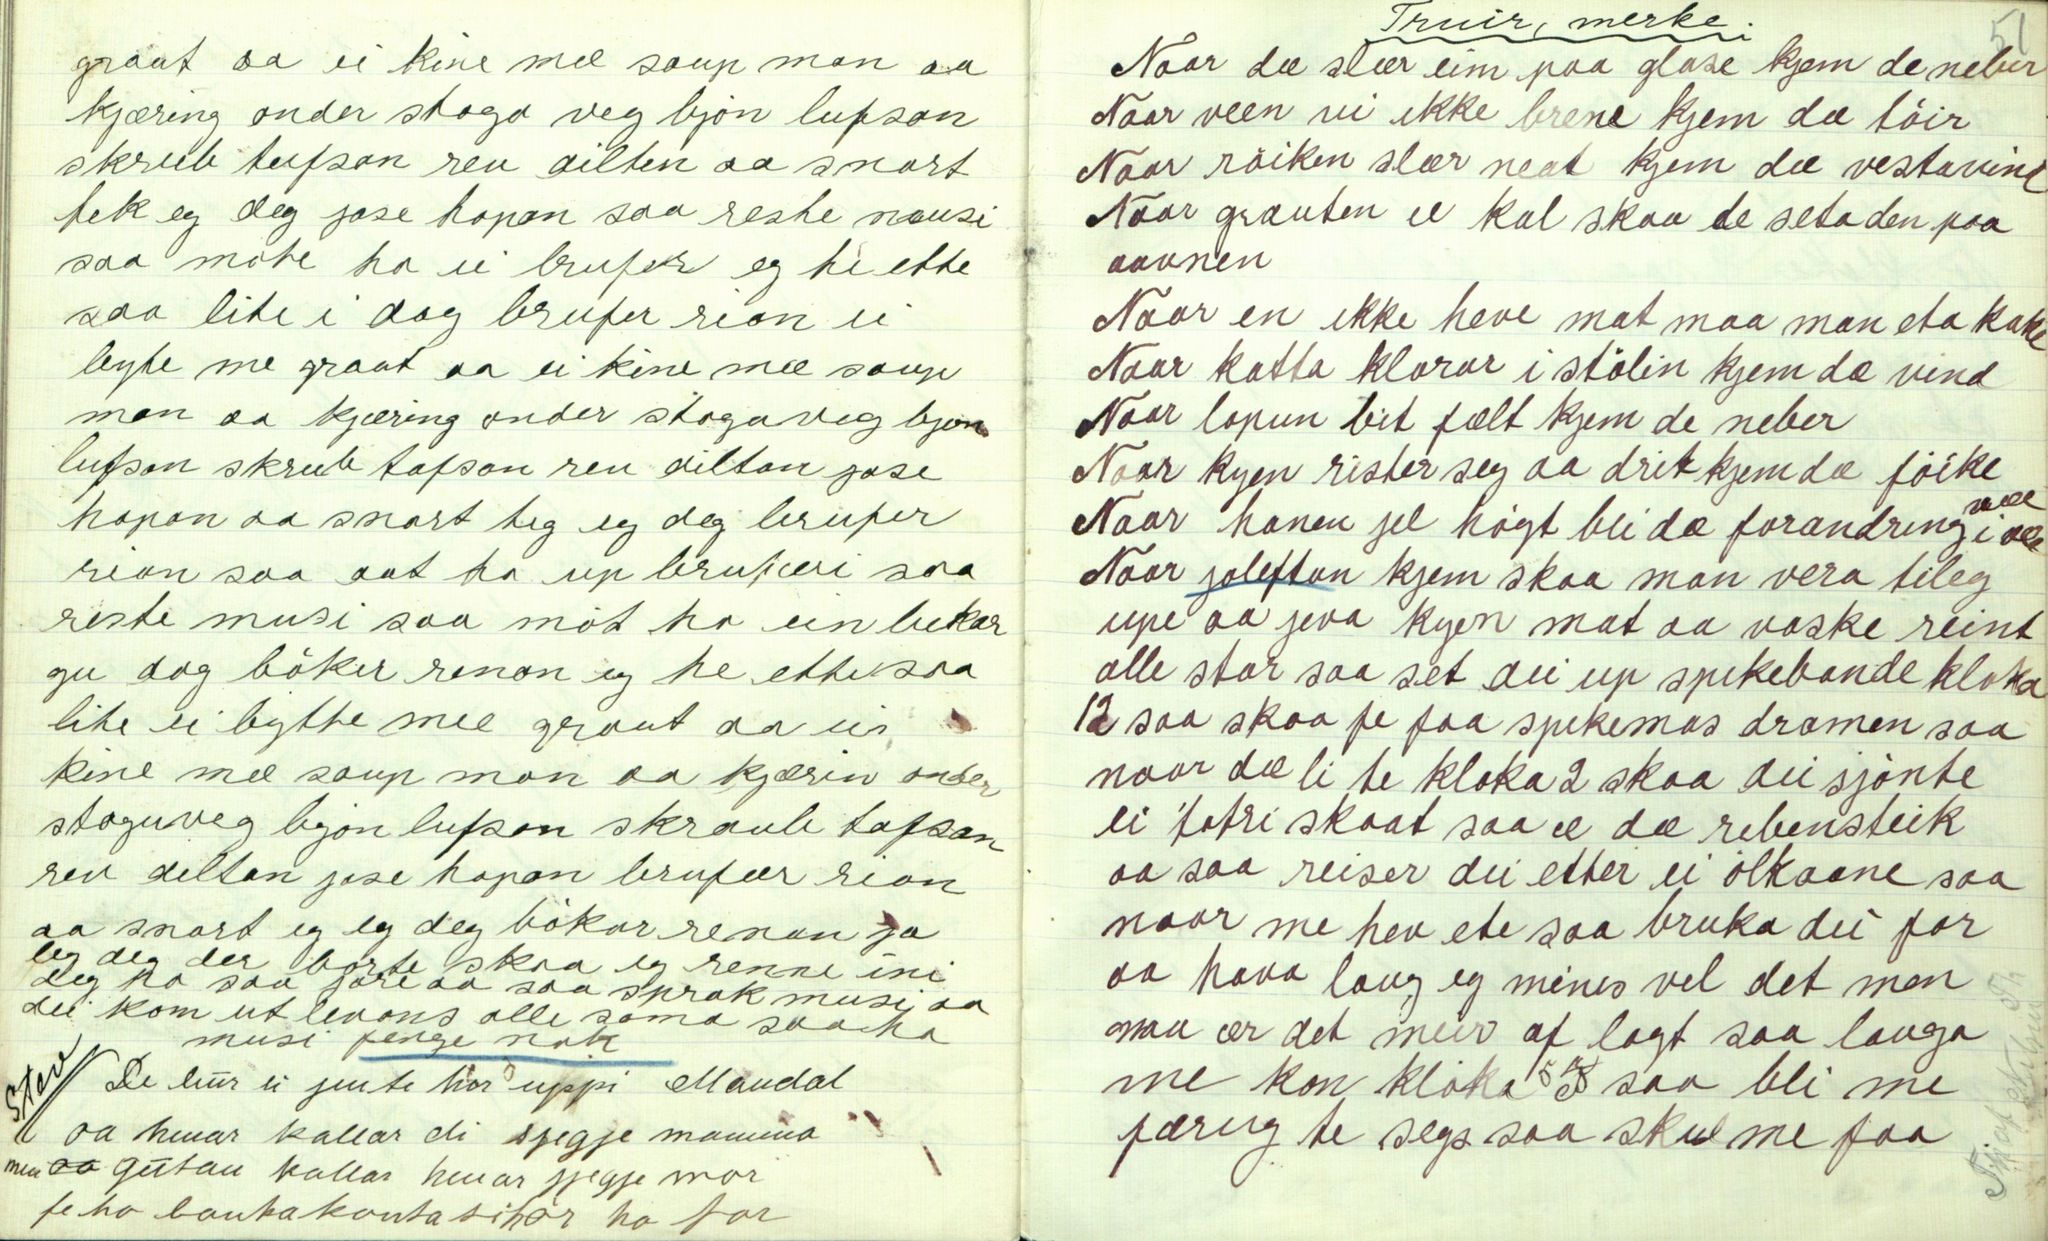 graut aa ei kine mæ saup man aa
kjæring onder stoga veg bjøn lufsan
skrub tufsan rev dilten aa snart
tek eg deg jase hopan saa reste mausi
saa møte ho ei brufer eg he ette
saa lite i dag brufer rian ei
bytte me graut aa ei kine mæ saup
man aa kjæring onder stoga veg bjøn
lufsan skrub tafsan rev diltan jase
hopan aa snart teg eg deg brufer
rian saa aat ho up bruferi saa
reste musi saa møt ho ein bukar
gu dag bøker renan eg he ette saa
lite ei bytte mæ graut aa ei
kine mæ saup man aa kjærin onder
stoguveg bjøn lufsan skraub tafsan
rev diltan jase hopan brufær rian
aa snart eg eg deg bøkar renan ja
leg deg der borte skaa eg renne ini
deg ho saa gøre aa saa sprak musi aa
dei kom ut levans alle sama saa ha
musi fenge nok
Stav
De bur ei jente hor uppi Mandal
aa henar kallar di spegje mamma
men aa gutan kallar henar spegje mor
fe ho bantakanta si hør ho for
51
Truir, merke.
Naar dæ slær eim paa glase kjem de nebur
Naar veen vi ikke brene kjem dæ tøir
Naar røiken slær neat kjem dæ vestavind
Naar grauten e kal skaa de seta den paa
aavnen
Naar en ikke heve mat maa man eta kake
Naar katta klorar i stølin kjem dæ vind
Naar lopun bit fælt kjem de neber
Naar kyen rister seg aa drit kjem dæ føike
Naar hanen jel høgt bli dæ forandring i væe
Naar joleftan kjem skaa man vera tileg
upe aa jeva kyen mat aa vaske reint
alle star saa set dei up spikebande kloka
12 saa skaa fe faa spikemas dramen saa
naar dæ li te kloka 2 skaa dei sjønte
ei fatri skaat saa e dæ rebensteik
aa saa reiser dei etter ei ølkaane saa
naar me hev ete saa bruka dei for
aa hava laug eg mines vel det men
nau er det meir af lagt saa lauga
me kon kloka 5 saa bli me
færug te segs saa skul me faa